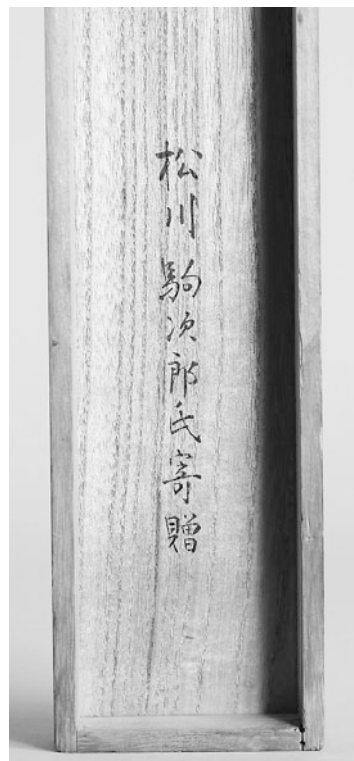 松川駒次郎氏寄贈